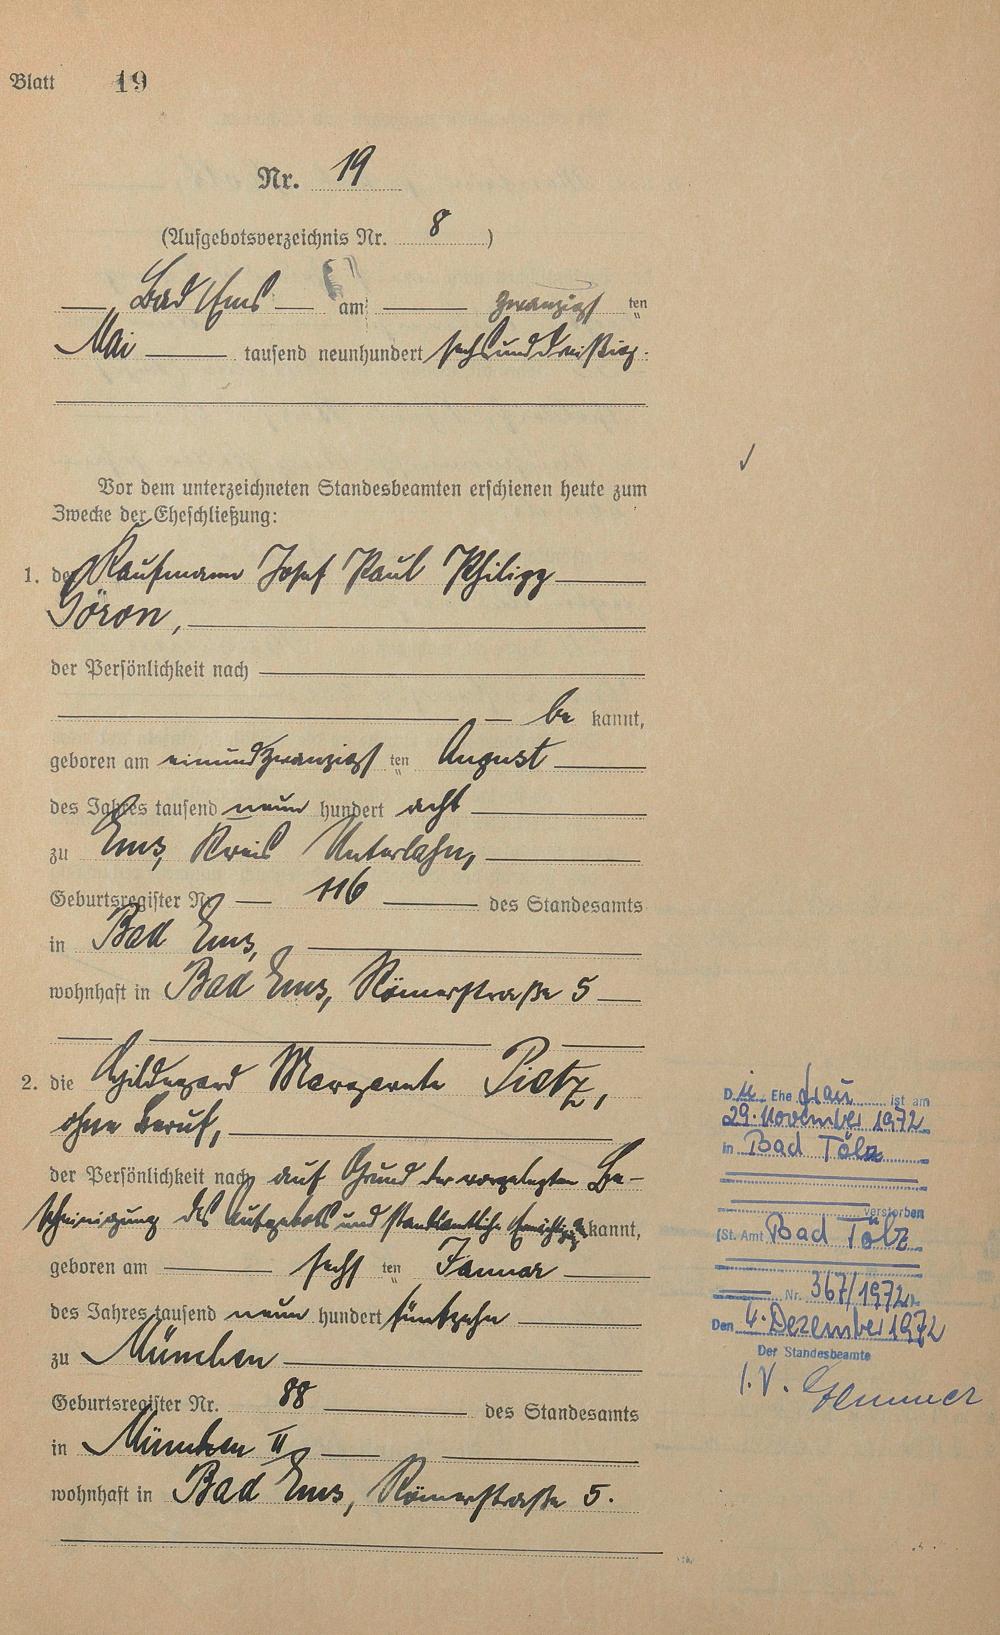 Blatt 19
Nr. 19
(Aufgebotsverzeichnis Nr. 8)
Bad Ems am zwanzigsten
Mai tausend neunhundert sechsunddreißig.
Vor dem unterzeichneten Standesbeamten erschienen heute zum
Zwecke der Eheschließung:
1. der Kaufmann Josef Paul Philipp
Göron,
der Persönlichkeit nach
be kannt,
geboren am einundzwanzigsten August
des Jahres tausend neun hundert acht
zu Ems, Kreis Unterlahn,
Geburtsregister Nr. 116 des Standesamts
in Bad Ems,
wohnhaft in Bad Ems, Römerstraße 5
2. die Hildegard Margarete Pietz,
ohne Beruf,
der Persönlichkeit nach auf Grund der vorgelegten Be-
scheinigung des Aufgebots und standesamtliche kannt,
geboren am sechsten Januar
des Jahres tausend neun hundert fünfzehn
zu München
Geburtsregister Nr. 88 des Standesamts
in München II
wohnhaft in Bad Ems, Römerstraße 5.
Die Ehefrau ist am
29. November 1972
in Bad Tölz
verstorben
(St. Amt Bad Tölz
Nr. 367/1972).
Den 4. Dezember 1972
Der Standesbeamte
I.V.